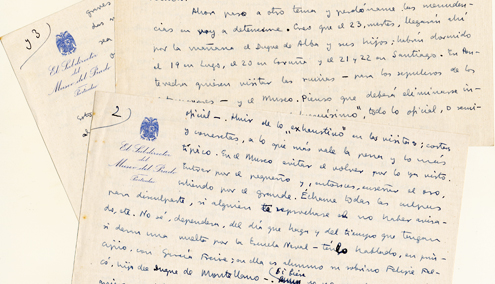 3)
El Subdirector
del
Museo del Prado
Particular
Ahora paso a otro tema y perdóname las menuden-
cias en que voy a detenerme. Creo que el 23, martes, llegarán ahí
por la mañana el Duque de Alba y sus hijos; habrán dormido
el 19 en Lugo, el 20 en Coruña y el 21 y 22 en Santiago. En Pon-
tevedra quieren visitar las ruinas – por los sepulcros de los
– y el Museo. Pienso que deberá eliminarse in-
todo lo oficial, o semi-
2)
El Subdirector
del
Museo del Prado
Particular
oficial – Huir de lo "exhaustivo" en las visitas; cortas
y concretas, a lo que más valga la pena y lo más
típico. En el Museo evitar el volver por lo ya visto.
Entrar por el pequeño y, entonces, enseñar el oro,
saliendo por el grande. Échame todas las culpas
para disculparte, si alguien te reprochase el no haber avisa-
do, etc. No sé, dependerá, del día que haga y del tiempo que tengan
si darán una vuelta por la Escuela Naval – tenlo hablado, en prin-
cipio, con García Freire; en ella es alumno su sobrino Felipe Fal-
có, hijo del Duque de Montellano –. Si bien